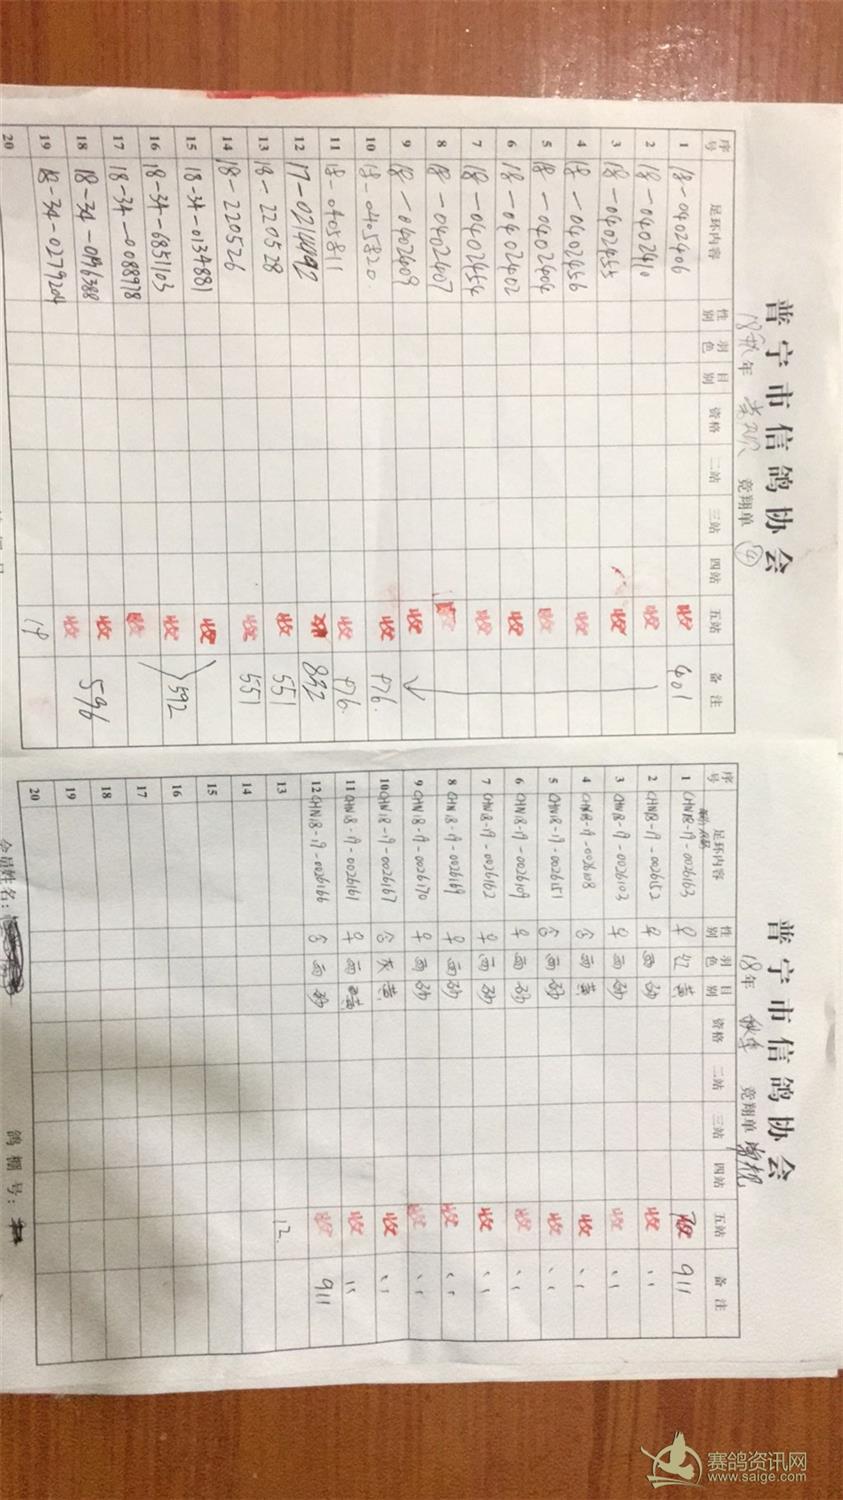 普宁市信鸽协会
18秋年 竞翔单 ④
序号 足环内容 性别 羽色 目别 资格 二站 三站 四站 五站 备注
1 18-0402406 收 401
2 18-0402410 收
3 18-0402455 收
4 18-0402456 收
5 18-0402404 收
6 18-0402402 收
7 18-0402454 收
8 18-0402407
9 18-0402409 收
10 18-0405820 收 876.
11 18-0405811 收 876.
12 17-0214492 832
13 18-220528 收 551
14 18-220526 收 551
15 18-34-0134881 收
16 18-34-6851103 收 592
17 18-34-0088978 收
18 18-34-0196388 收 596
19 18-34-0279204 收
20 19
普宁市信鸽协会
18年 秋季 竞翔单
序号 足环内容 性别 羽色 目别 资格 二站 三站 四站 五站 备注
1 CHN18-19-0026163 红 黄 收 911
2 CHN18-19-0026152 雨 砂 收 〃
3 CHN18-19-0026103 雨 砂 收 〃
4 CHN18-19-0026108 雨 黄 收 〃
5 CHN18-19-0026151 雨 砂 收 〃
6 CHN18-19-0026109 雨 砂 收 〃
7 CHN18-19-0026162 雨 砂 收 〃
8 CHN18-19-0026169 雨 砂 收 〃
9 CHN18-19-0026170 雨 砂 收 〃
10 CHN18-19-0026167 灰 黄 收 〃
11 CHN18-19-0026161 雨 收 〃
12 CHN18-19-0026166 雨 砂 收 911
13 12.
14
15
16
17
18
19
20
会员姓名： 鸽棚号：
赛鸽资讯网
www.saige.com